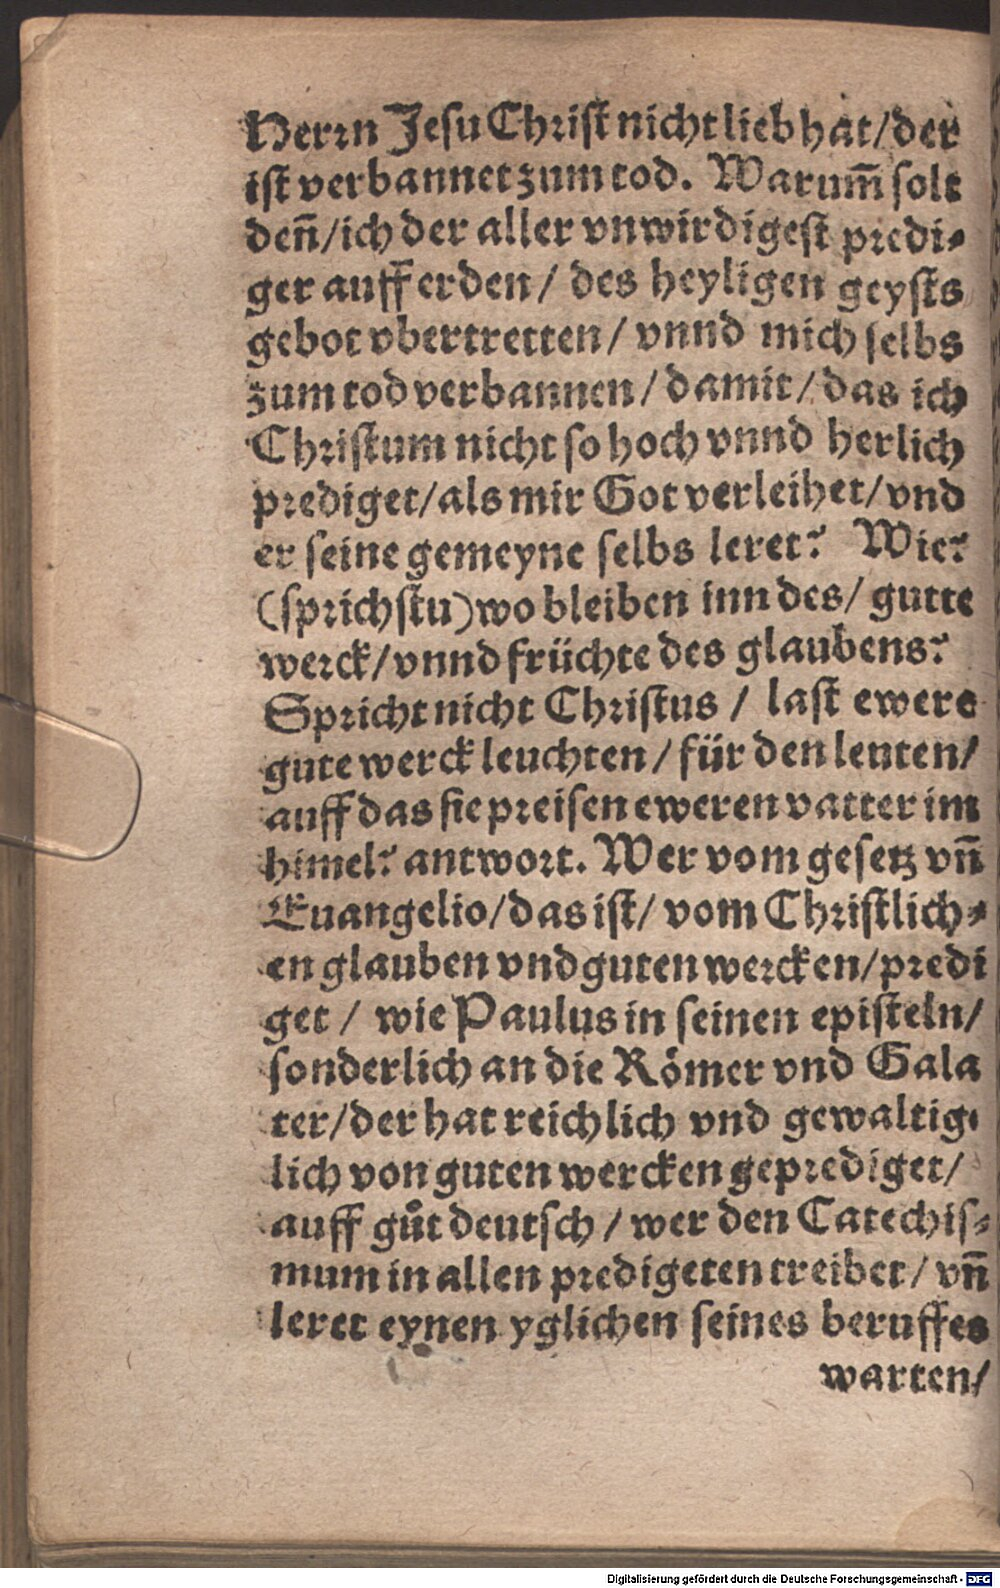 Herrn Jesu Christ nicht lieb hat/der
ist verbannet zum tod. Warum̄ solt
den̄/ich der aller vnwirdigest predi-
ger auff erden/ des heyligen geysts
gebot vbertretten/ vnnd mich selbs
zum tod verbannen/ damit/ das ich
Christum nicht so hoch vnnd herlich
prediget/als mir Got verleihet/vnd
er seine gemeyne selbs leret? Wie?
(sprichstu) wo bleiben inn des/ gutte
werck/vnnd früchte des glaubens?
Spricht nicht Christus / last ewere
gute werck leuchten/ für den leuten/
auff das sie preisen eweren vatter im
himel? antwort. Wer vom gesetz vn̄
Euangelio/das ist/ vom Christlich-
en glauben vnd guten wercken/predi
get / wie Paulus in seinen episteln/
sonderlich an die Römer vnd Gala
ter/der hat reichlich vnd gewaltig-
lich von guten wercken geprediget/
auff gůt deutsch / wer den Catechis-
mum in allen predigeten treibet/ vn̄
leret eynen yglichen seines beruffes
warten/
Digitalisierung gefördert durch die Deutsche Forschungsgemeinschaft - DFG